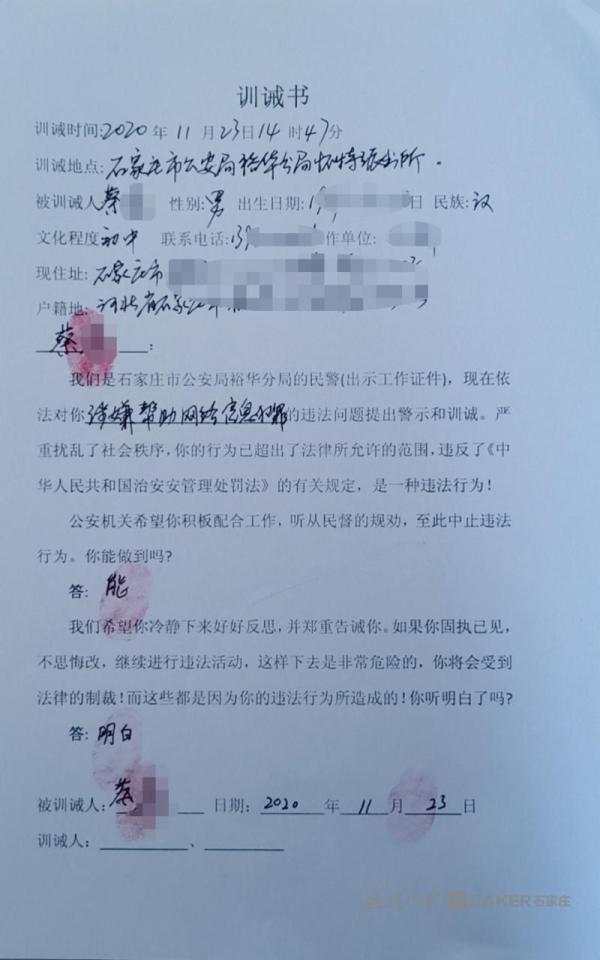 训诫书
训诫时间:2020年11月23日14时47分
训诫地点:石家庄市公安局裕华分局怀特派出所.
被训诫人蔡 性别:男 出生日期:19 日 民族:汉
文化程度初中 联系电话:139 作单位:
现住址:石家庄市
户籍地:河北省石家庄市
蔡 :
我们是石家庄市公安局裕华分局的民警(出示工作证件)，现在依
法对你涉嫌帮助网络信息犯罪的违法问题提出警示和训诫。严
重扰乱了社会秩序，你的行为已超出了法律所允许的范围，违反了《中
华人民共和国治安安管理处罚法》的有关规定，是一种违法行为！
公安机关希望你积板配合工作，听从民督的规劝，至此中止违法
行为。你能做到吗？
答：能
我们希望你冷静下来好好反思，并郑重告诫你。如果你固执已见，
不思悔改，继续进行违法活动，这样下去是非常危险的，你将会受到
法律的制裁！而这些都是因为你的违法行为所造成的！你听明白了吗？
答：明白
被训诫人：蔡 日期：2020年11月23日
训诫人： 、
ZAKER石家庄